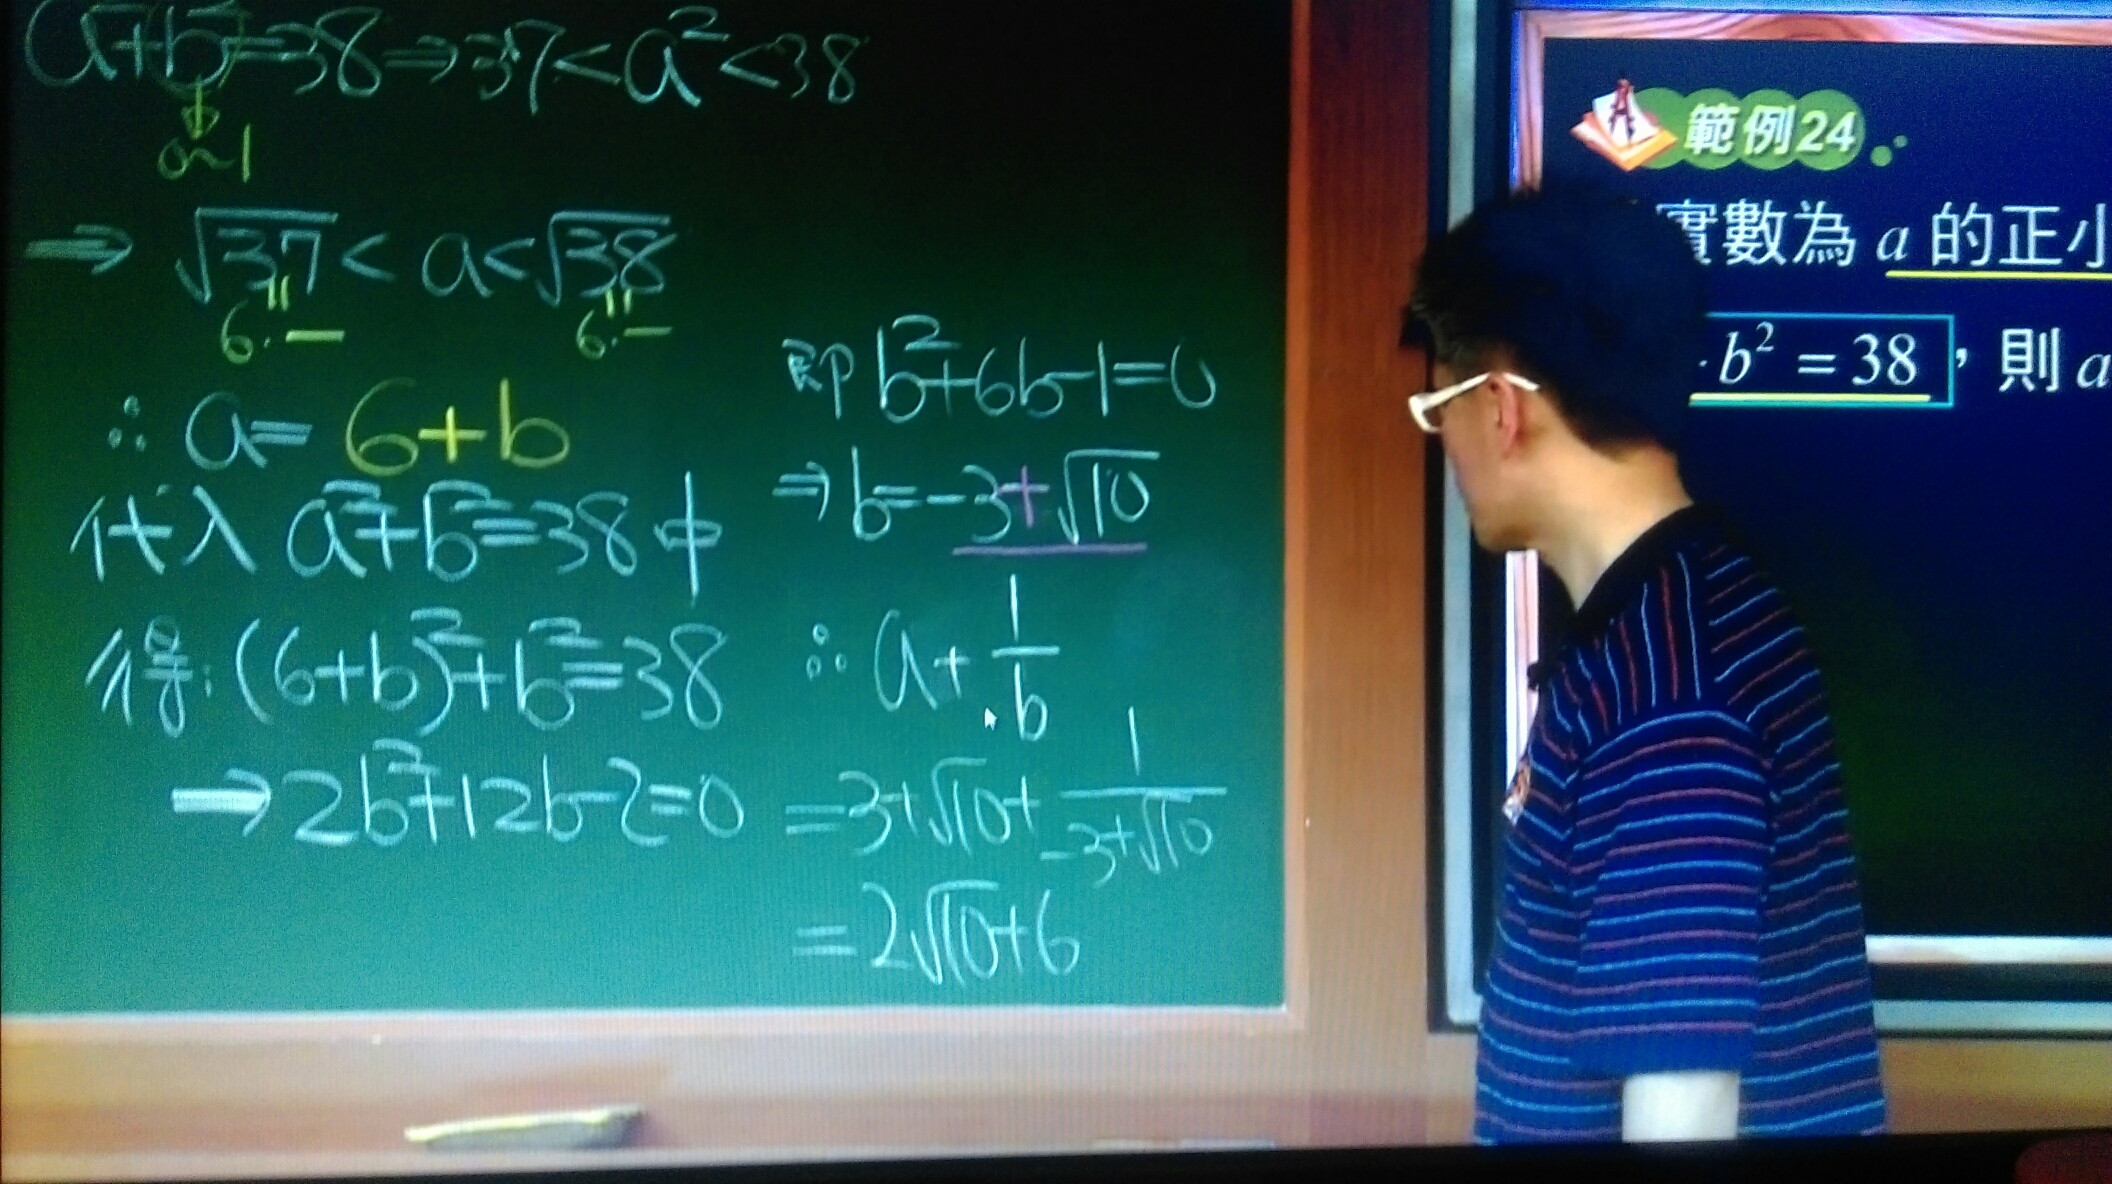 a²+b²=38⇒37<a²<38
0~1
⇒ √37 < a < √38
6.— 6.—
∴ a= 6+b
代入 a²+b²=38中
得:(6+b)²+b²=38
⇒2b²+12b-2=0
即 b²+6b-1=0
⇒b=-3+√10
∴ a+1/b
=3+√10+1/(-3+√10)
=2√10+6
範例24
實數為 a 的正小
b² = 38,則 a